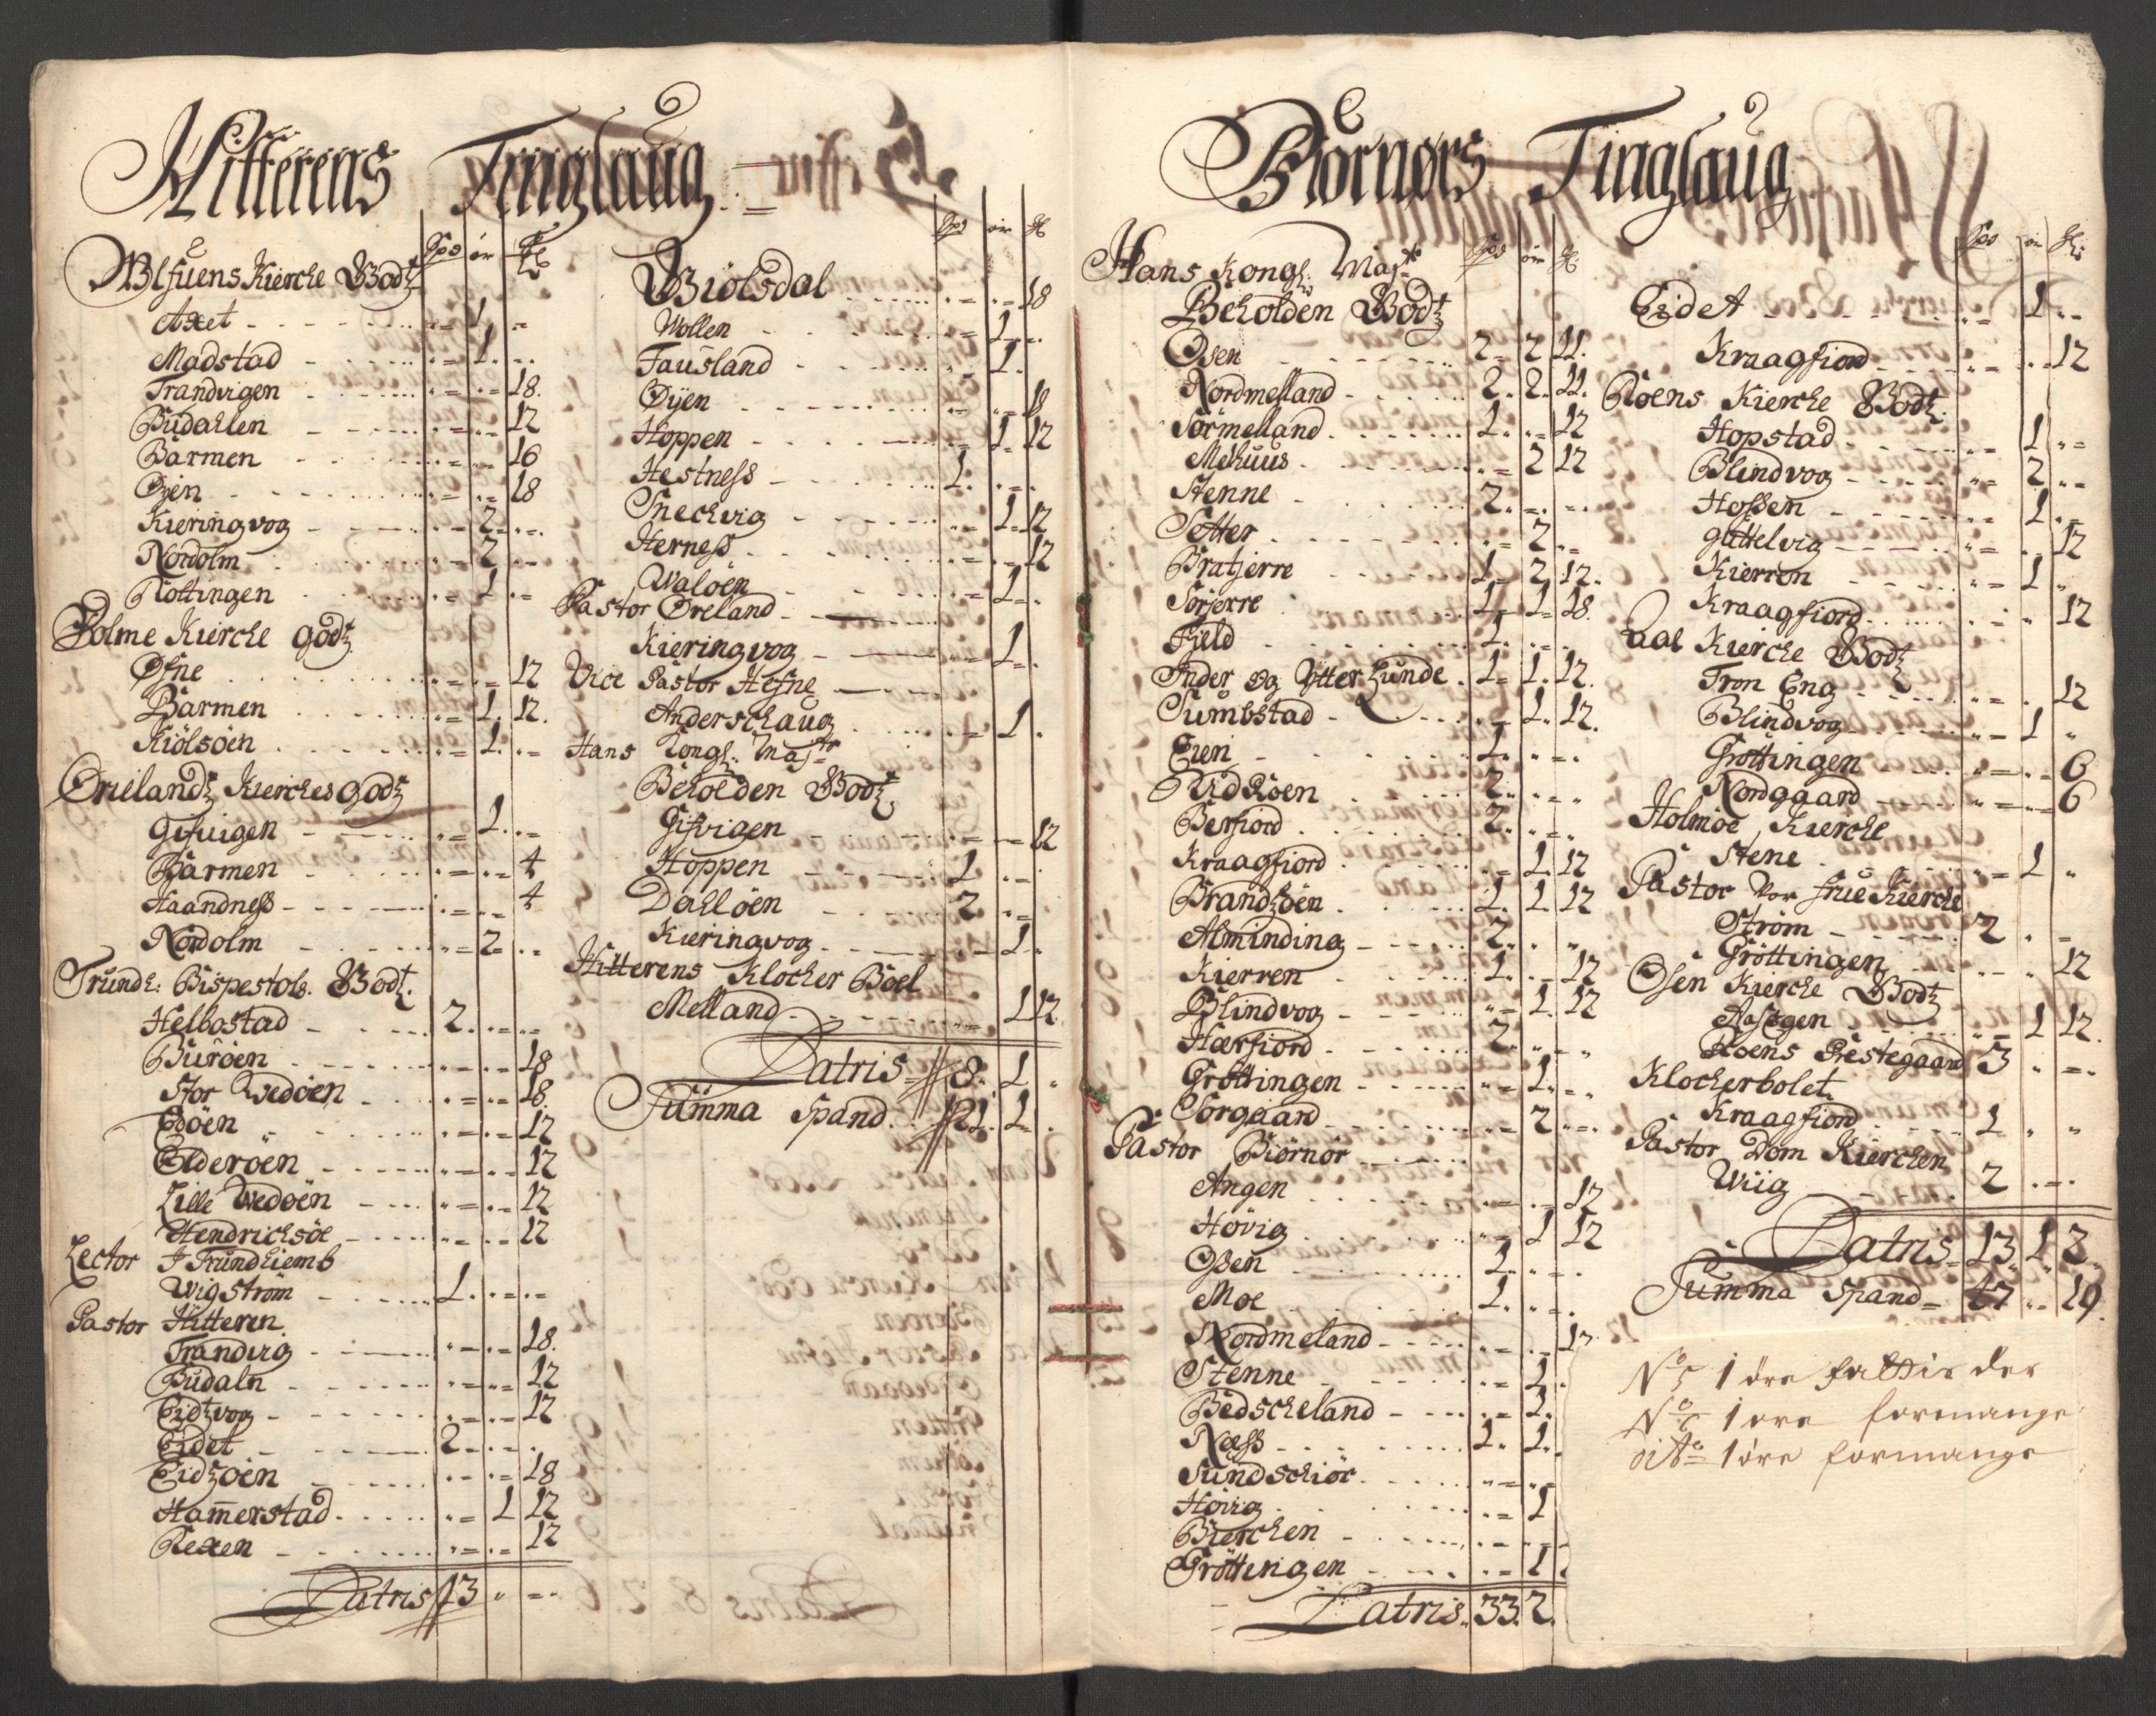 Hitterens Tinglaug
Spd ör Mk
Kierche Godtz
Axet 1
Madstad 1
Trandvigen 18
Büdahlen 12
Barmen 16
Öÿen 18
Kieringvog 2
Nordolm 2
Rottingen 1
Holme Kierche godtz
Ösne 12
Barmen 1 12
Kiölsöen 1
Örelandtz Kierches godtz
Gifuigen 1
Barmen 4
Haandness 4
Nordolm 2
Trundh: Bispestols Godtz
Helbostad 2
Buröen 18
Stor Wedöen 18
Edöen 12
Elderöen 12
Lille Wedöen 12
Hendrichsöe 12
Lector I Trundhiemb
Wigström 1
Pastor Hitteren
Trandvig 18
Büdaln 12
Eidtzvog 12
Eidet 2
Eidtzöen 18
Hammerstad 1 12
Rexen 12
Latris 13
Spd ör Mk
Giölsdal 18
Wollen 1
Fausland 1
Öÿen 18
Hoppen 1 12
Hestness 1
Snechvig 1 12
Herness 12
Walöen 1
Pastor Öreland
Kieringvog 1
Vice Pastor Hefne
Anderschaug 1
Hans Kongl: Maÿtz
Beholden Godtz
Gifvigen 12
Hoppen 1
Dahlöen 2
Kieringvog 1
Hitterens Klocher Boel
Melland 1 12
Latris 8 1
Summa Spand 21 1
Biörnörs Tinglaug
Hans Kongl: Maÿtz Spd ör Mk
Beholden Godtz
Osen 2 2 11
Nordmelland 2 2 11
Sörmelland 1 12
Mehuus 2 12
Stenne 2
Setter 2
Bratjerre 1 2 12
Sörjerre 1 1 18
Fjeld 1
Inder og Ytter Lunde 1 1 12
Sumbstad 1 12
Eien 1
Udröen 2
Berfiord 2
Kraagfiord 1 12
Brandtzöen 1 1 12
Alminding 2
Kierren 1 12
Blindvog 1 12
Hærfiord 2
Gröttingen 1
Sörgaard 2
Pastor Biörnör
Angen 12
Hövig 1 12
Ossen 1
Moe 1
Nordmeland 12
Stenne 1
Bedscheland 2
Ness 1 1
Sundschiör
Hövig 1
Bierchen
Gröttingen 1
Latris 33 2
Spd ör Mk
Eidet 1
Kraagfiord 12
Roens Kierche Godtz
Hopstad 1
Blindvog 2
Hossen 1
Guttelvig 12
Kierren 1
Kraagfiord 12
Aal Kierche Godtz
Tron Eng 12
Blindvog 1
Gröttingen 6
Nordgaard 6
Holmöe Kierche
Stene 1
Pastor Vor frue Kierche
Ström 2
Gröttingen 12
Osen Kierche Godtz
Aasegen 1 12
Roens Prestegaard 3
Klocherbolet
Kraagfiord 1
Pastor Dom Kierchen
Wiig 2
Latris 13 1 2
Summa Spand 47 19
No 5 1 öre fattis der
No 6 1 öre formange
dito 1 öre formange